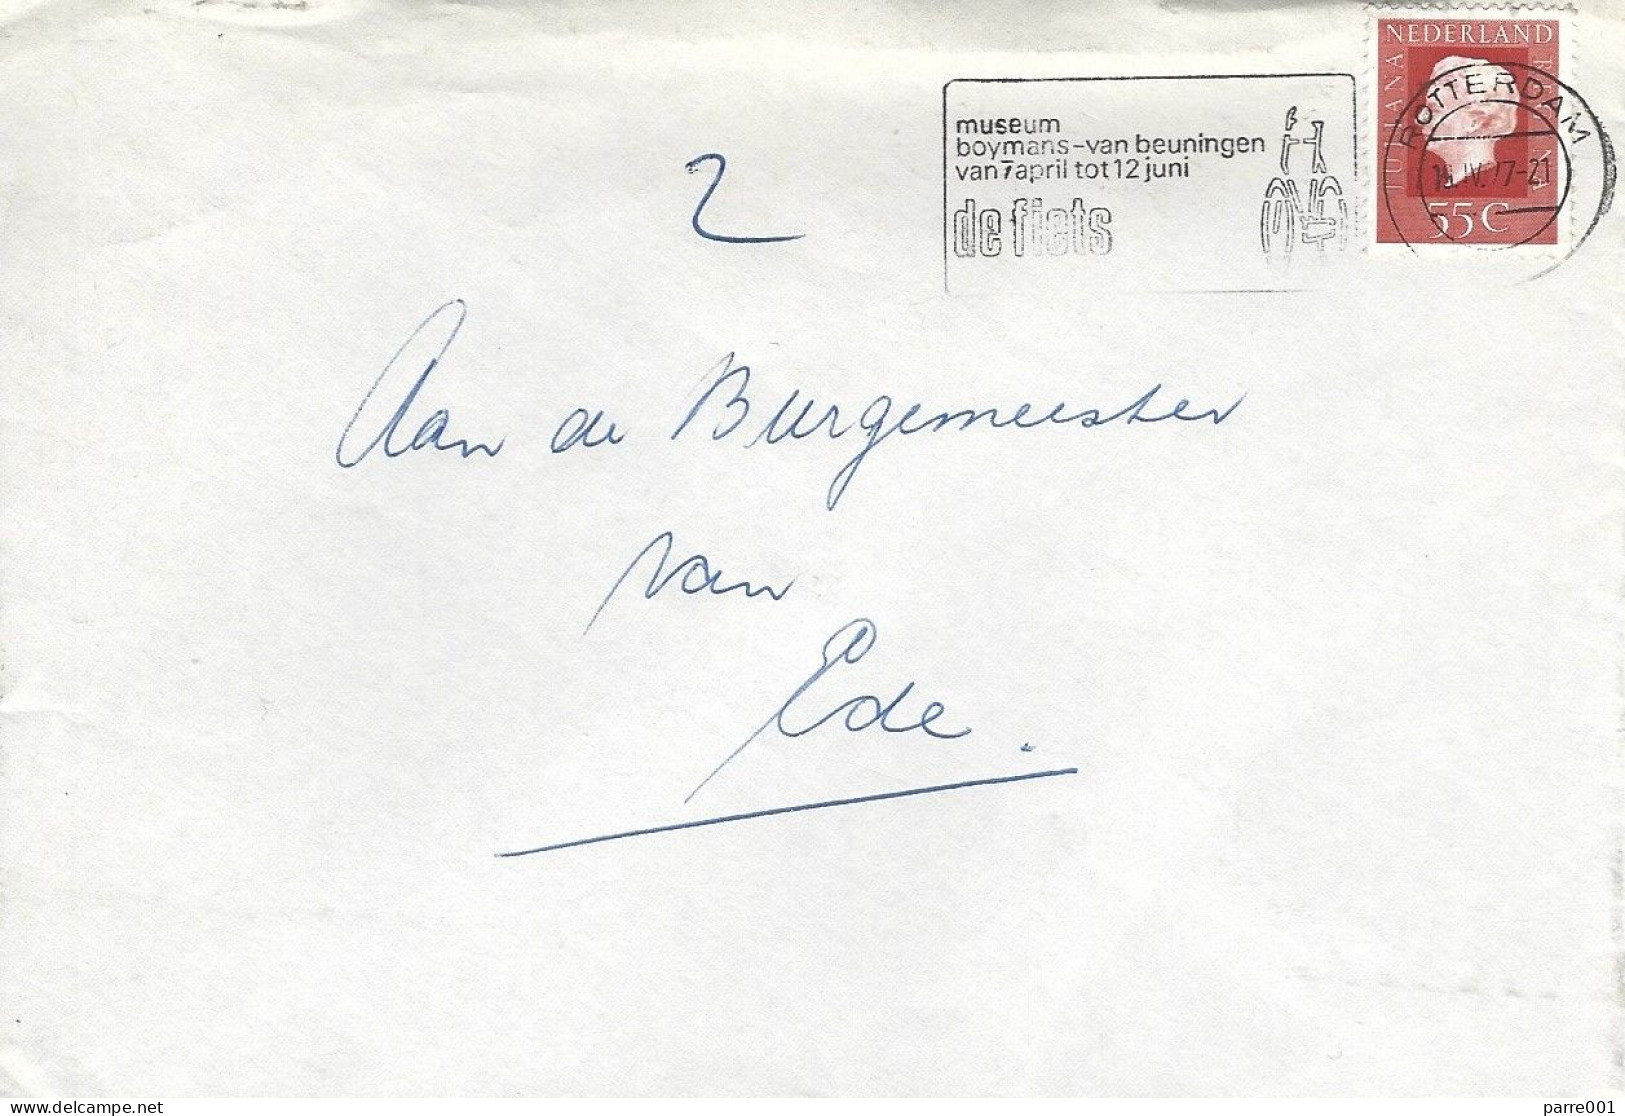 NEDERLAND
JULIANA REGINA
55 C
ROTTERDAM
museum
boymans-van beuningen
van 7 april tot 12 juni
de fiets
2
Aan de Burgemeester
van
Ede.
delcampe.net
parre001